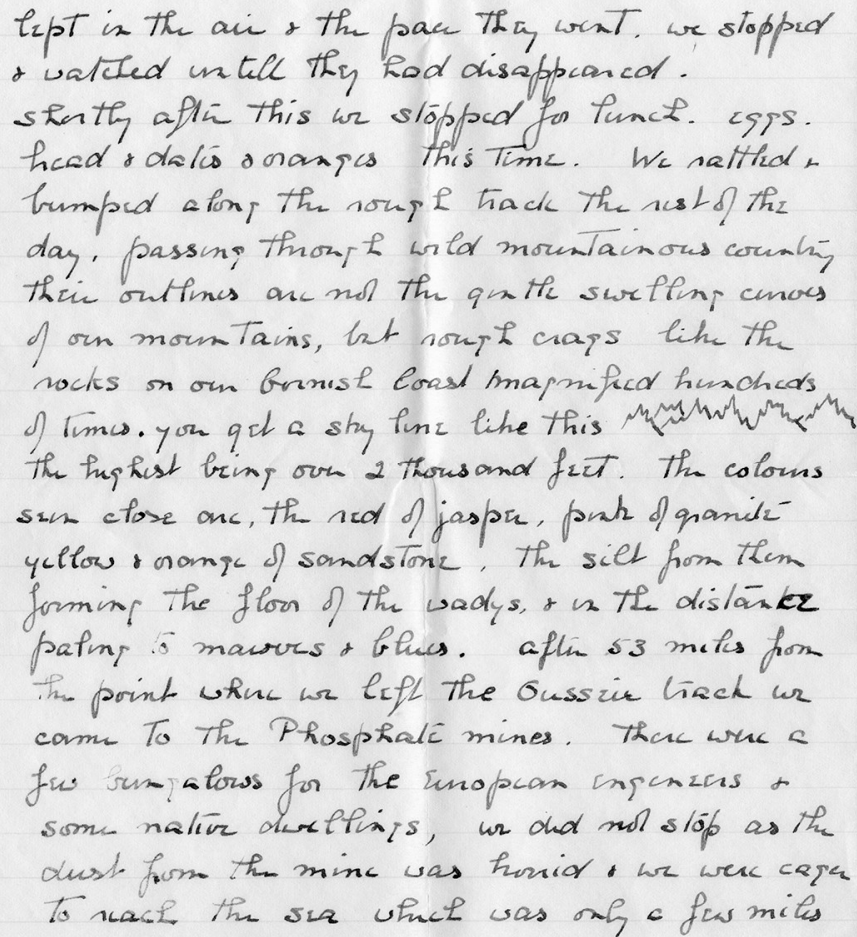 lept in the air & the pace they went. we stopped
& watched untill they had disappeared.
shortly after this we stopped for lunch. eggs.
bread & dates & oranges this time. We rattled &
bumped along the rough track the rest of the
day, passing through wild mountainous country
their outlines are not the gentle swelling curves
of our mountains, but rough crags like the
rocks on our Cornish Coast magnified hundreds
of times. you get a sky line like this
the highest being over 2 thousand feet. The colours
seen close are, the red of jasper, pink of granite
yellow & orange of sandstone, the silt from them
forming the floor of the wadys, & in the distance
paling to mauves & blues. after 53 miles from
the point where we left the Gusseir track we
came to the Phosphate mines. There were a
few bungalows for the European engineers &
some native dwellings, we did not stop as the
dust from the mine was horrid & we were eager
to reach the sea which was only a few miles